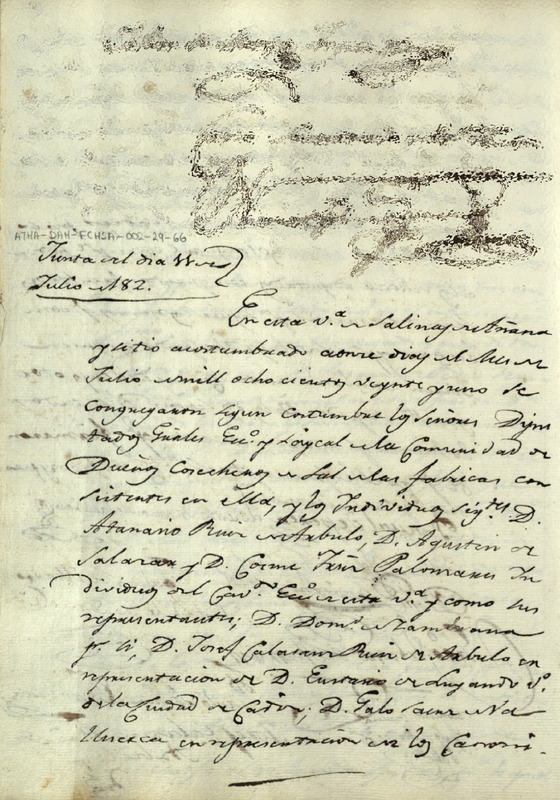 ATHA-DAH-FCHSA-002-29-66
Junta del dia 11 de
Julio de 82.
En esta v.ª de Salinas de Añana
y sitio acostumbrado a once dias del Mes de
Julio de mill ocho cientos veynte y uno se
Congregaron segun costumbre los Señores Dipu
tados Grales Ecc.º y Laycal de la Comunidad de
Dueños Cosecheros de Sal de las fabricas con
sistentes en ella, y los Individuos sig.tes D.
Atanasio Ruiz de Arbulo, D. Agustin de
Salazar y D. Cosme Palomares In
dividuos del Cav.do Ecc.º de esta v.ª y como sus
representantes; D. Dom.º de Zambrana
p.r si, D. Josef Calasanz Ruiz de Arbulo en
representacion de D. Eustasio de Luyando v.º
de la Ciudad de Cadiz; D. Galo Saenz de
en representacion de los